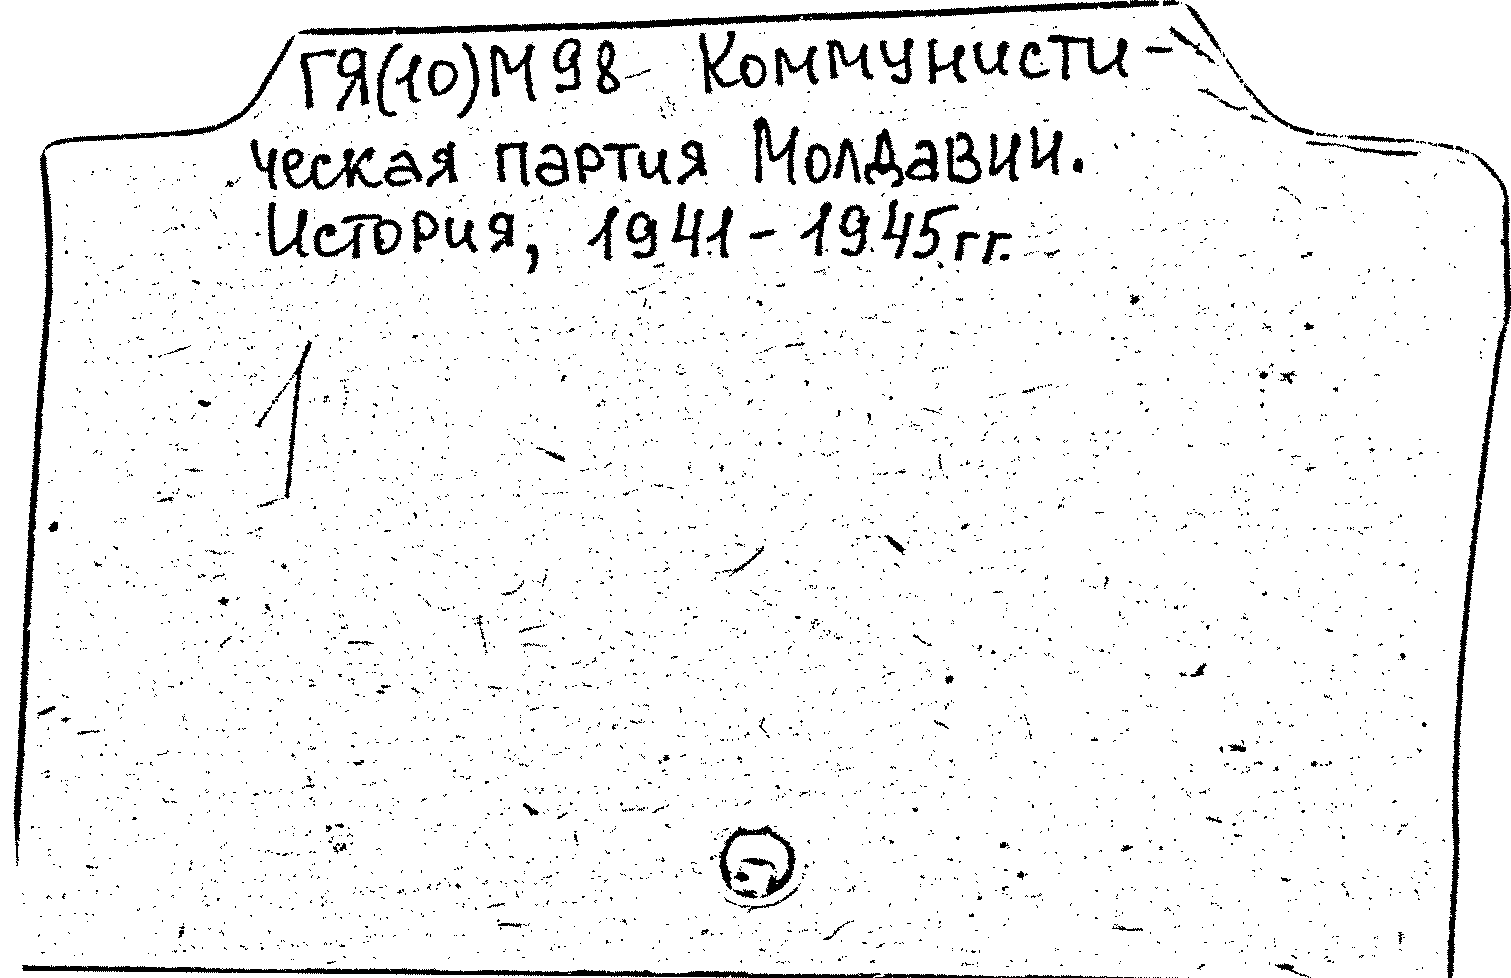 ГЯ(10)М98 Коммунисти-
ческая партия Молдавии.
История, 1941-1945гг.
1